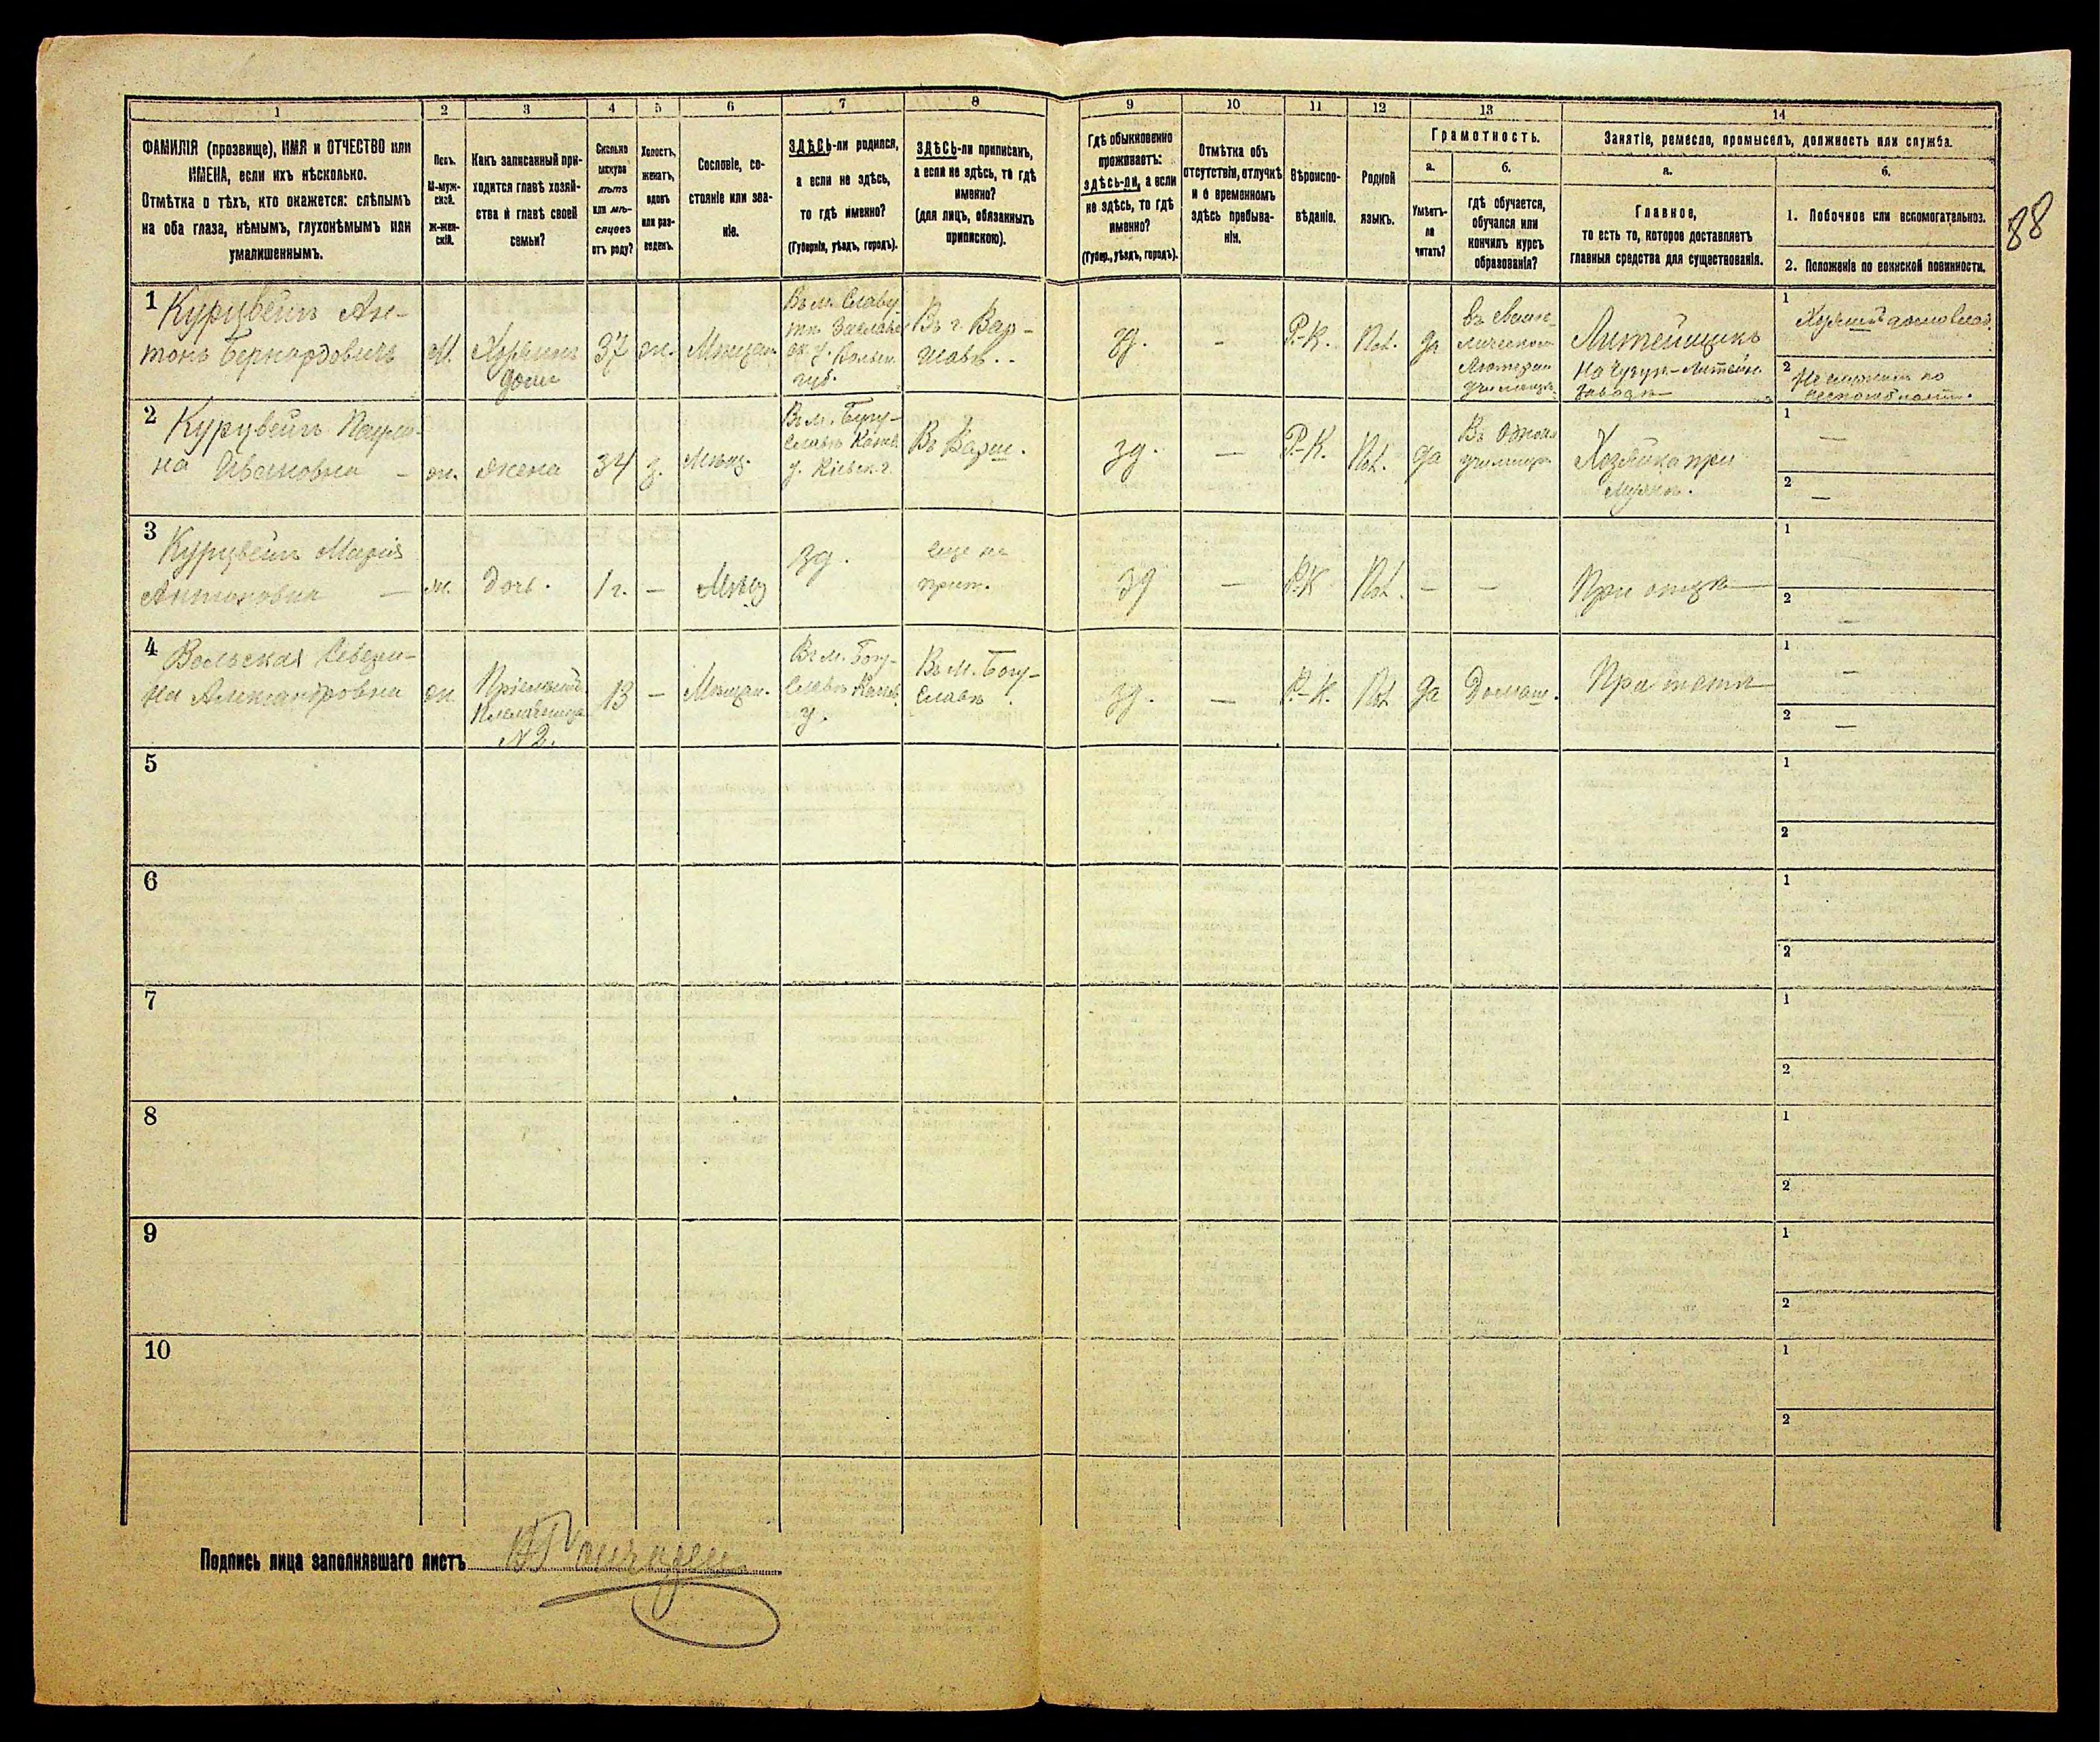 1
2
3
4
5
6
7
8
9
10
11
12
13
14
ФАМИЛІЯ (прозвище), ИМЯ и ОТЧЕСТВО или
ИМЕНА, если ихъ нѣсколько.
Отмѣтка о тѣхъ, кто окажется: слѣпымъ
на оба глаза, нѣмымъ, глухонѣмымъ или
умалишеннымъ.
Полъ.
М-муж-
ской.
Ж-жен-
скій.
Какъ записанный при-
ходится главѣ хозяй-
ства и главѣ своей
семьи?
Сколько
минуло
лѣтъ
или мѣ-
сяцевъ
отъ роду?
Холостъ,
женатъ,
вдовъ
или раз-
веденъ.
Сословіе, со-
стояніе или зва-
ніе.
ЗДѢСЬ-ли родился,
а если не здѣсь,
то гдѣ именно?
(Губернія, уѣздъ, городъ).
ЗДѢСЬ-ли приписанъ,
а если не здѣсь, то гдѣ
именно?
(для лицъ, обязанныхъ
припискою).
Гдѣ обыкновенно
проживаетъ:
здѣсь-ли, а если
не здѣсь, то гдѣ
именно?
(Губер., уѣздъ, городъ).
Отмѣтка объ
отсутствіи, отлучкѣ
и о временномъ
здѣсь пребыва-
ніи.
Вѣроиспо-
вѣданіе.
Родной
языкъ.
Грамотность.
а.
Умѣетъ-
ли
читать?
б.
гдѣ обучается,
обучался или
кончилъ курсъ
образованія?
Занятіе, ремесло, промыселъ, должность или служба.
а.
Главное,
то есть то, которое доставляетъ
главныя средства для существованія.
б.
1. Побочное или вспомогательное.
2. Положеніе по воинской повинности.
88
1
Курцвейль Ан-
тонъ Бернардовичъ
М.
Хозяинъ
дома
37
ж.
Мѣщан.
Въ м. Славу-
тѣ Заславс-
к. у. Волын.
губ.
Въ г. Вар-
шавѣ.
зд.
-
Р.-К.
Пол.
да
Литейщикъ
На Чугун-Литейн.
Заводѣ
1
2
2
Курцвейль Паули-
на Ивановна
ж.
жена
34
з.
Мѣщ.
Въ м. Богу-
славѣ Канев.
у. Кіевск. г.
Въ Варш.
зд.
—
Р.-К.
Пол.
да
Хозяйка при
мужѣ.
1
—
2
—
3
Курцвейль Марія
Антоновна —
ж.
дочь.
1 г.
—
Мѣщ
зд.
еще не
прип.
зд
—
Р.-К
Пол.
—
—
При отцѣ
1
—
2
—
4
Вольская Севери-
на Александровна
ж
Пріемышъ
Племянница
№ 2.
13
—
Мѣщан.
Въ м. Богу-
славѣ Канев.
у.
Въ м. Богу-
славѣ.
зд.
—
Р.-К.
Пол
да
Домаш.
При теткѣ
1
—
2
—
5
1
2
6
1
2
7
1
2
8
1
2
9
1
2
10
1
2
Подпись лица заполнявшаго листъ